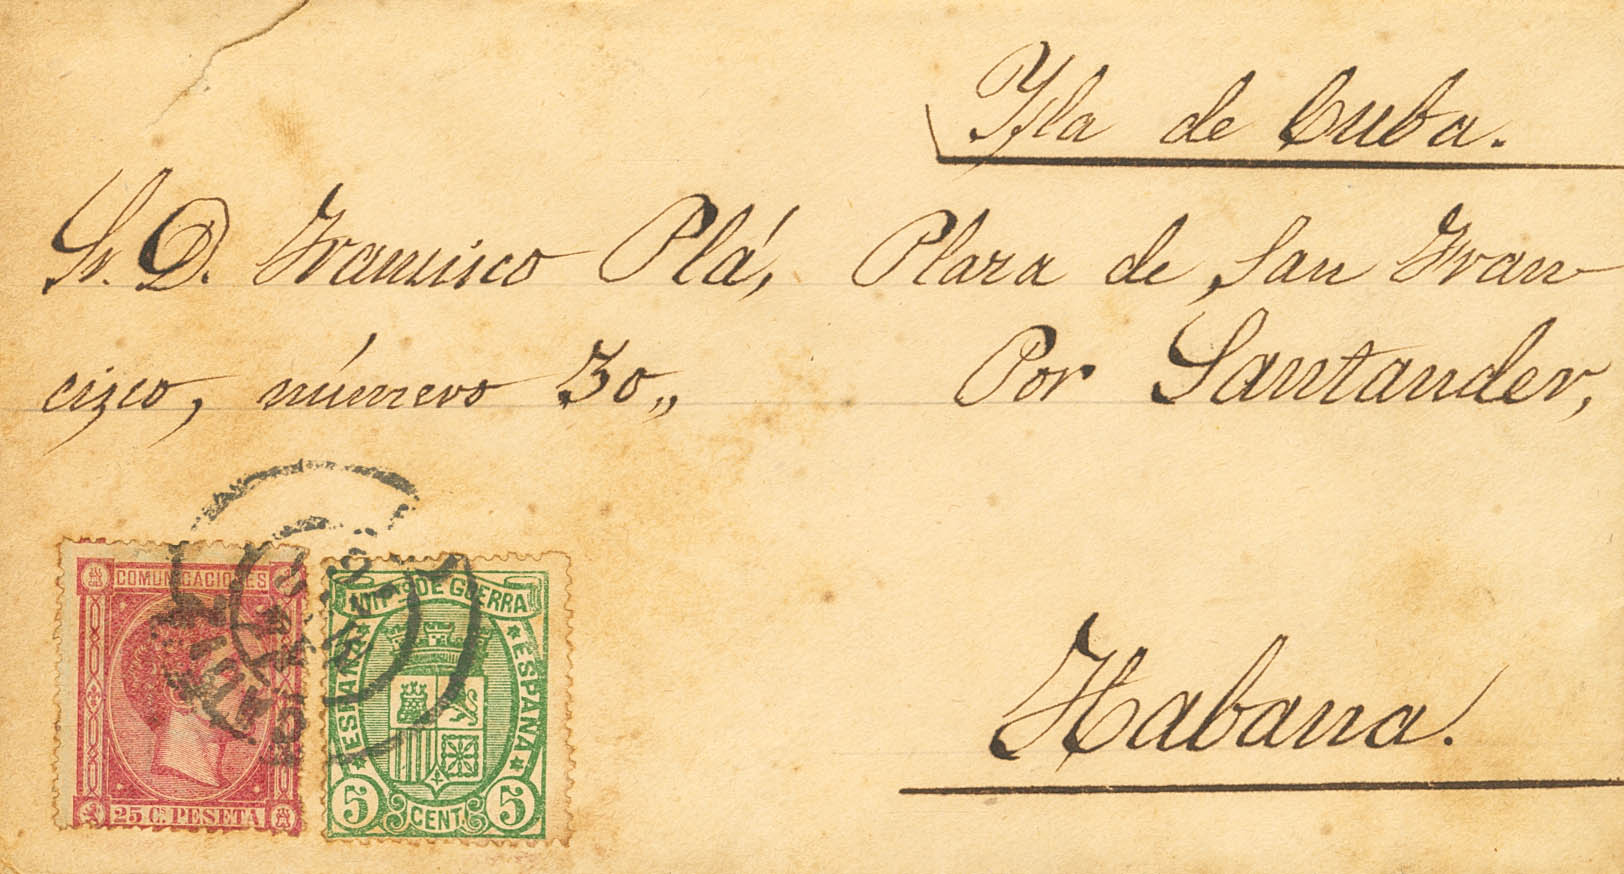 Ysla de Cuba.
Sr. D. Francisco Plá, Plaza de San Fran
cizco, número 30,,
Por Santander,
Habana.
COMUNICACIONES
25 C. PESETA
IMPTO DE GUERRA
ESPAÑA
ESPAÑA
5 CENT. 5